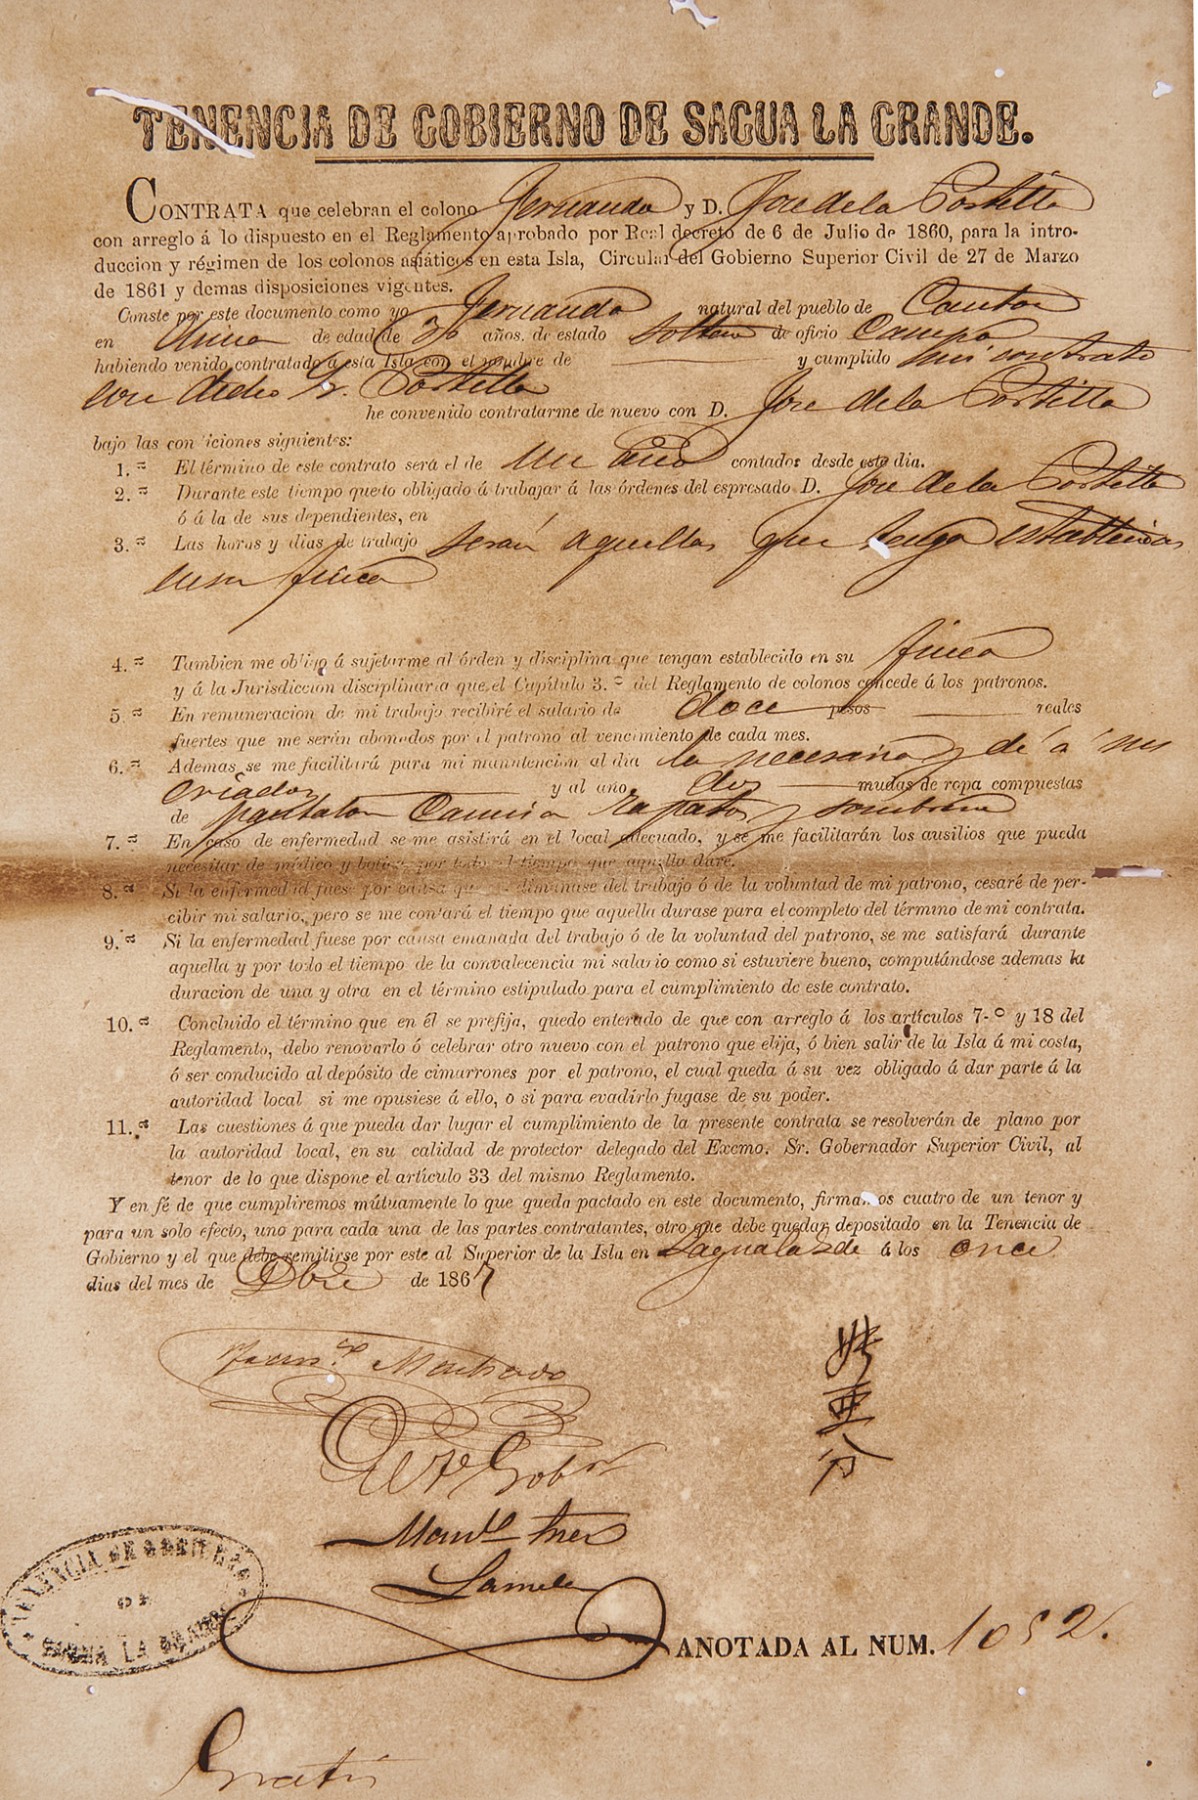 TENENCIA DE GOBIERNO DE SAGUA LA GRANDE.
CONTRATA que celebran el colono Fernando y D. Jose de la Costilla
con arreglo á lo dispuesto en el Reglamento aprobado por Real decreto de 6 de Julio de 1860, para la intro-
duccion y régimen de los colonos asiáticos en esta Isla, Circular del Gobierno Superior Civil de 27 de Marzo
de 1861 y demas disposiciones vigentes.
Conste por este documento como yo Fernando natural del pueblo de Canton
en China de edad de 30 años, de estado soltero de oficio Campo
habiendo venido contratado á esta Isla con el nombre de y cumplido mi contrato
con dicho Sr. Costilla
he convenido contratarme de nuevo con D. Jose de la Costilla
bajo las condiciones siguientes:
1.ª El término de este contrato será el de un año contados desde este dia.
2.ª Durante este tiempo quedo obligado á trabajar á las órdenes del espresado D. Jose de la Costilla
ó á la de sus dependientes, en
3.ª Las horas y dias de trabajo serán aquellas que tenga establecidas
en su finca
4.ª Tambien me obligo á sujetarme al órden y disciplina que tengan establecido en su finca
y á la Jurisdiccion disciplinaria que el Capítulo 3.º del Reglamento de colonos concede á los patronos.
5.ª En remuneracion de mi trabajo recibiré el salario de doce pesos reales
fuertes que me serán abonados por el patrono al vencimiento de cada mes.
6.ª Ademas se me facilitará para mi manutencion al dia lo necesario y dé á sus
criados y al año dos mudas de ropa compuestas
de pantalon Camisa zapatos y sombrero
7.ª En caso de enfermedad se me asistirá en el local adecuado, y se me facilitarán los ausilios que pueda
necesitar de médico y botica por todo el tiempo que aquella dure.
8.ª Si la enfermedad fuese por causa que dimanase del trabajo ó de la voluntad de mi patrono, cesaré de per-
cibir mi salario, pero se me contará el tiempo que aquella durase para el completo del término de mi contrata.
9.ª Si la enfermedad fuese por causa emanada del trabajo ó de la voluntad del patrono, se me satisfará durante
aquella y por todo el tiempo de la convalecencia mi salario como si estuviere bueno, computándose ademas la
duracion de una y otra en el término estipulado para el cumplimiento de este contrato.
10.ª Concluido el término que en él se prefija, quedo enterado de que con arreglo á los artículos 7.º y 18 del
Reglamento, debo renovarlo ó celebrar otro nuevo con el patrono que elija, ó bien salir de la Isla á mi costa,
ó ser conducido al depósito de cimarrones por el patrono, el cual queda á su vez obligado á dar parte á la
autoridad local si me opusiese á ello, o si para evadirlo fugase de su poder.
11.ª Las cuestiones á que pueda dar lugar el cumplimiento de la presente contrata se resolverán de plano por
la autoridad local, en su calidad de protector delegado del Excmo. Sr. Gobernador Superior Civil, al
tenor de lo que dispone el artículo 33 del mismo Reglamento.
Y en fé de que cumpliremos mútuamente lo que queda pactado en este documento, firmamos cuatro de un tenor y
para un solo efecto, uno para cada una de las partes contratantes, otro que debe quedar depositado en la Tenencia de
Gobierno y el que debe remitirse por este al Superior de la Isla en Sagua la Gde á los once
dias del mes de Dbre de 1867
Franco. Machado
Gobor
Manl.
TENENCIA DE GOBIERNO
DE
SAGUA LA GRANDE
ANOTADA AL NUM. 1052.
Gratis